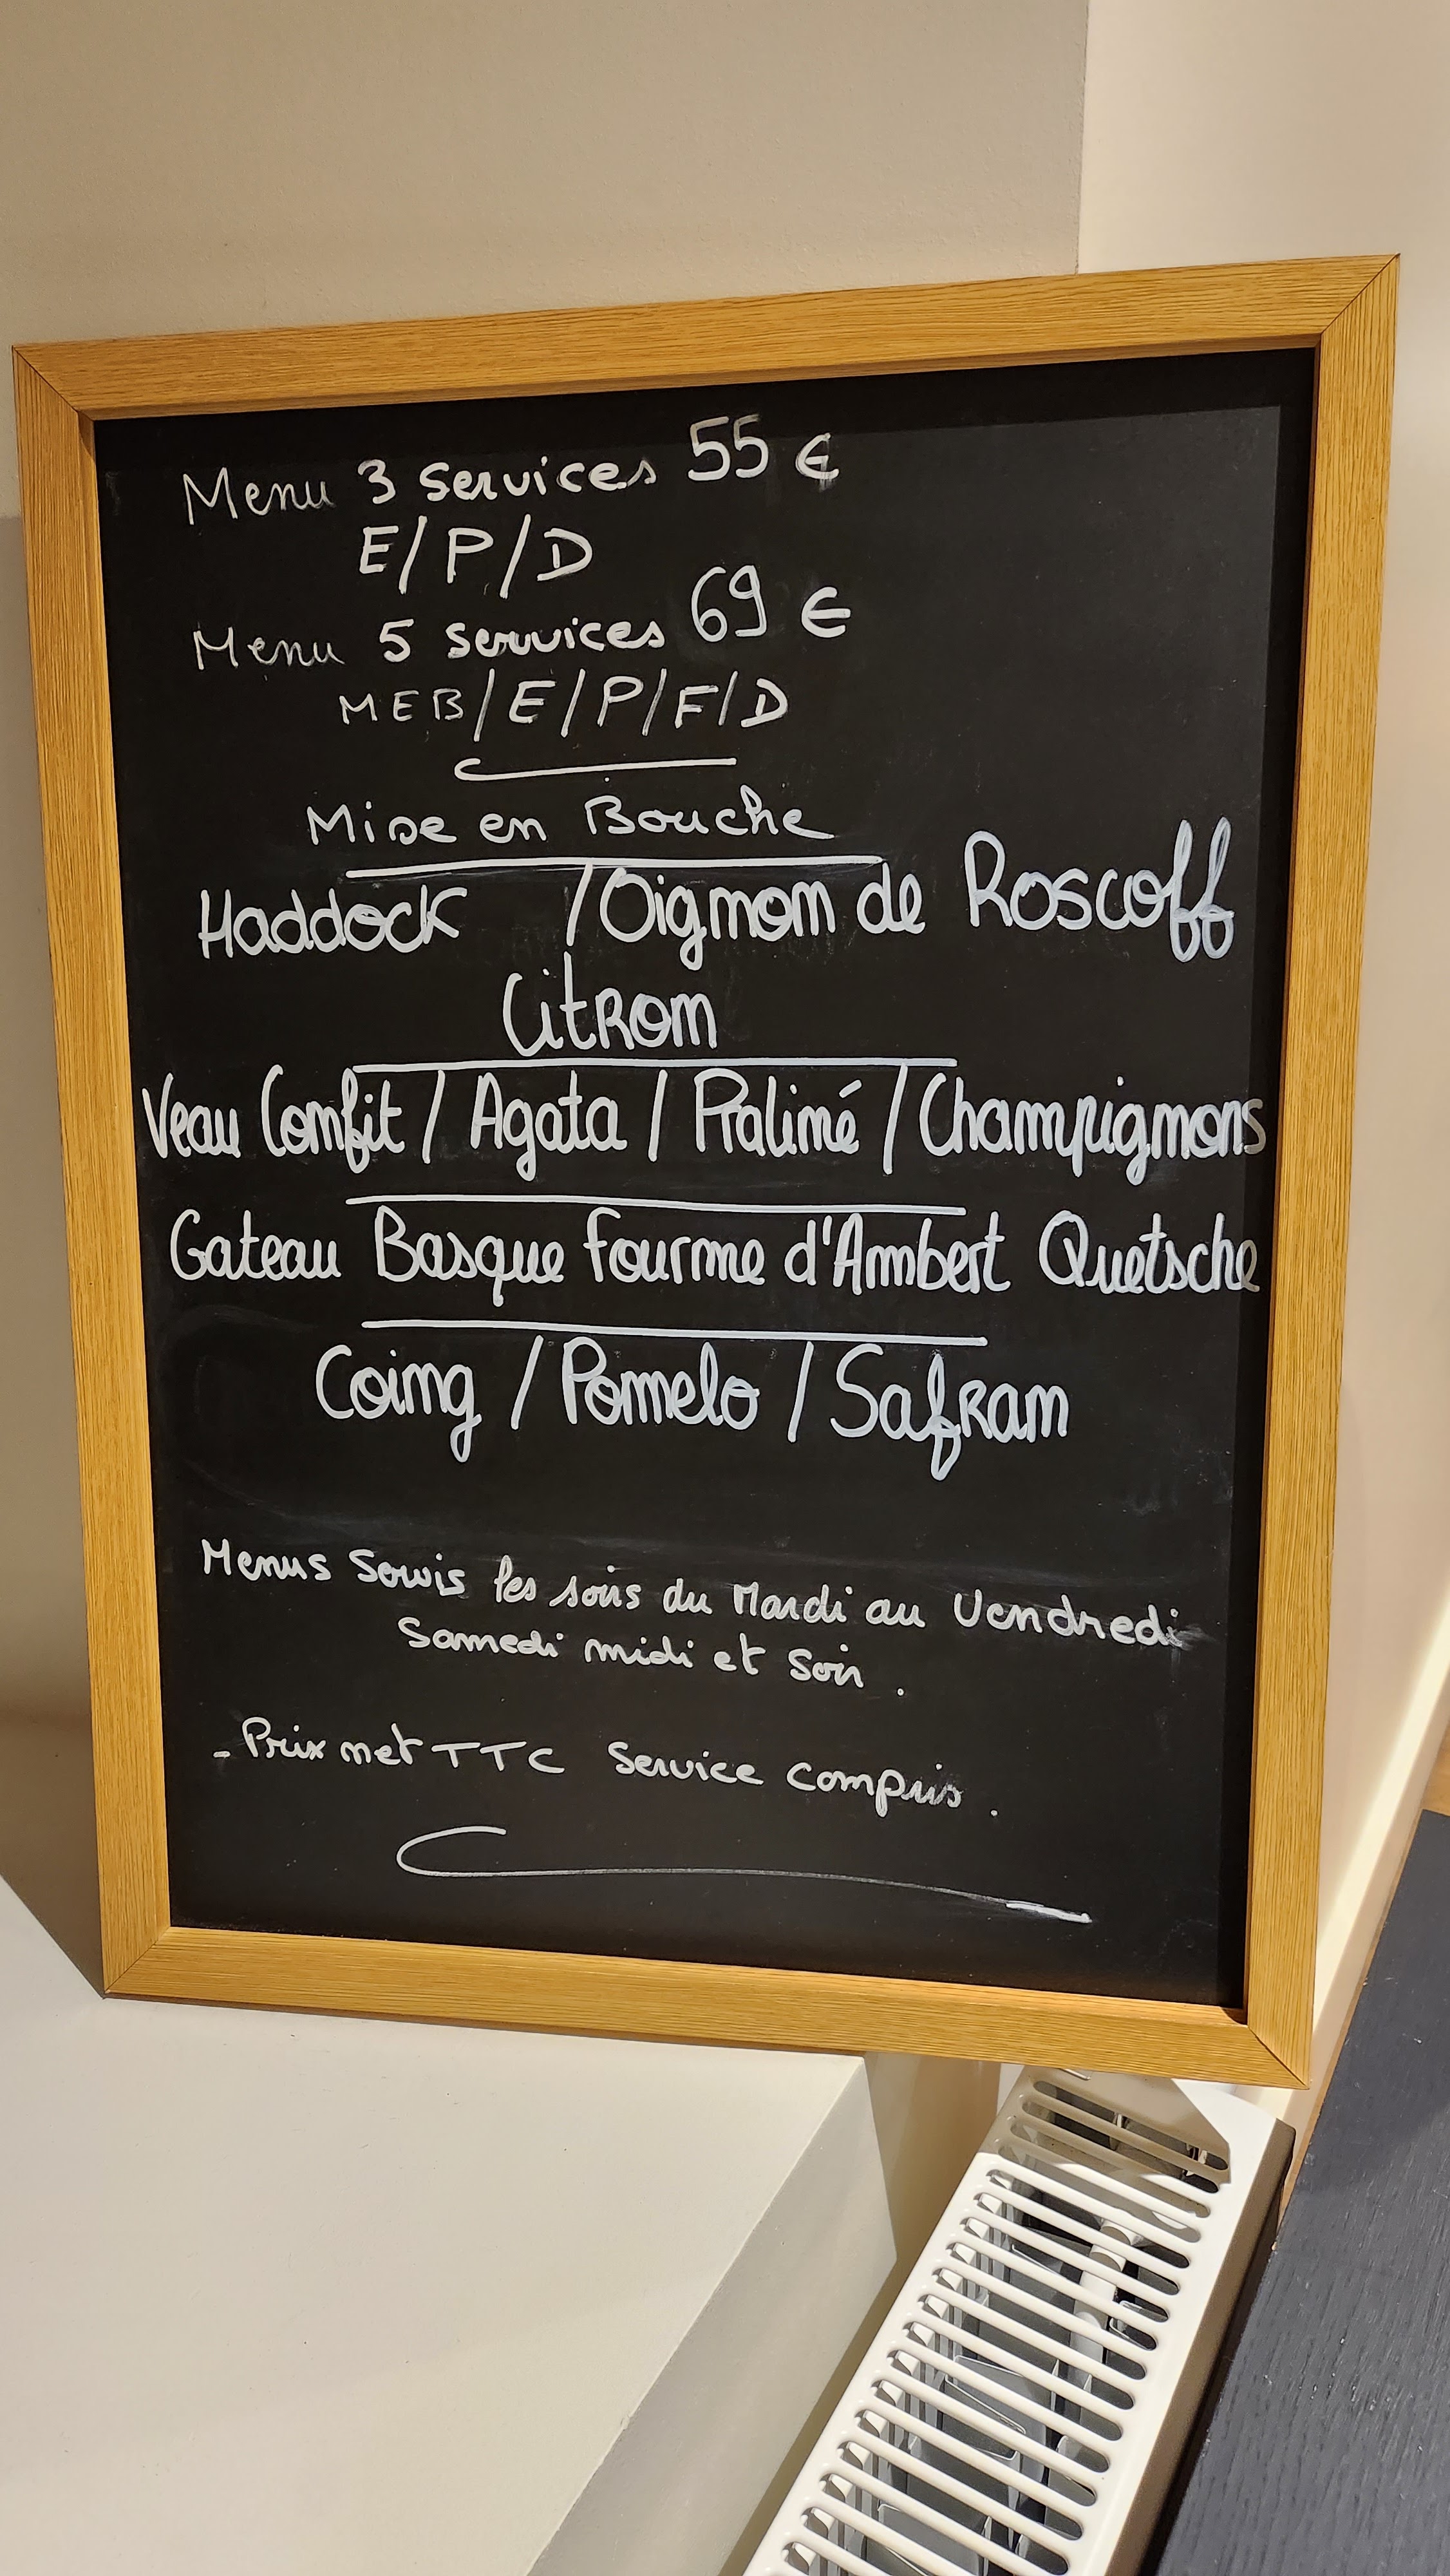 Menu 3 services 55 €
E/P/D
Menu 5 services 69 €
MEB/E/P/F/D
Mise en Bouche
Haddock /Oignon de Roscoff
Citron
Veau Confit / Agata / Praliné / Champignons
Gateau Basque Fourme d'Ambert Quetsche
Coing / Pomelo / Safran
Menus Servis les soirs du Mardi au Vendredi
Samedi midi et Soir.
- Prix net TTC Service compris.